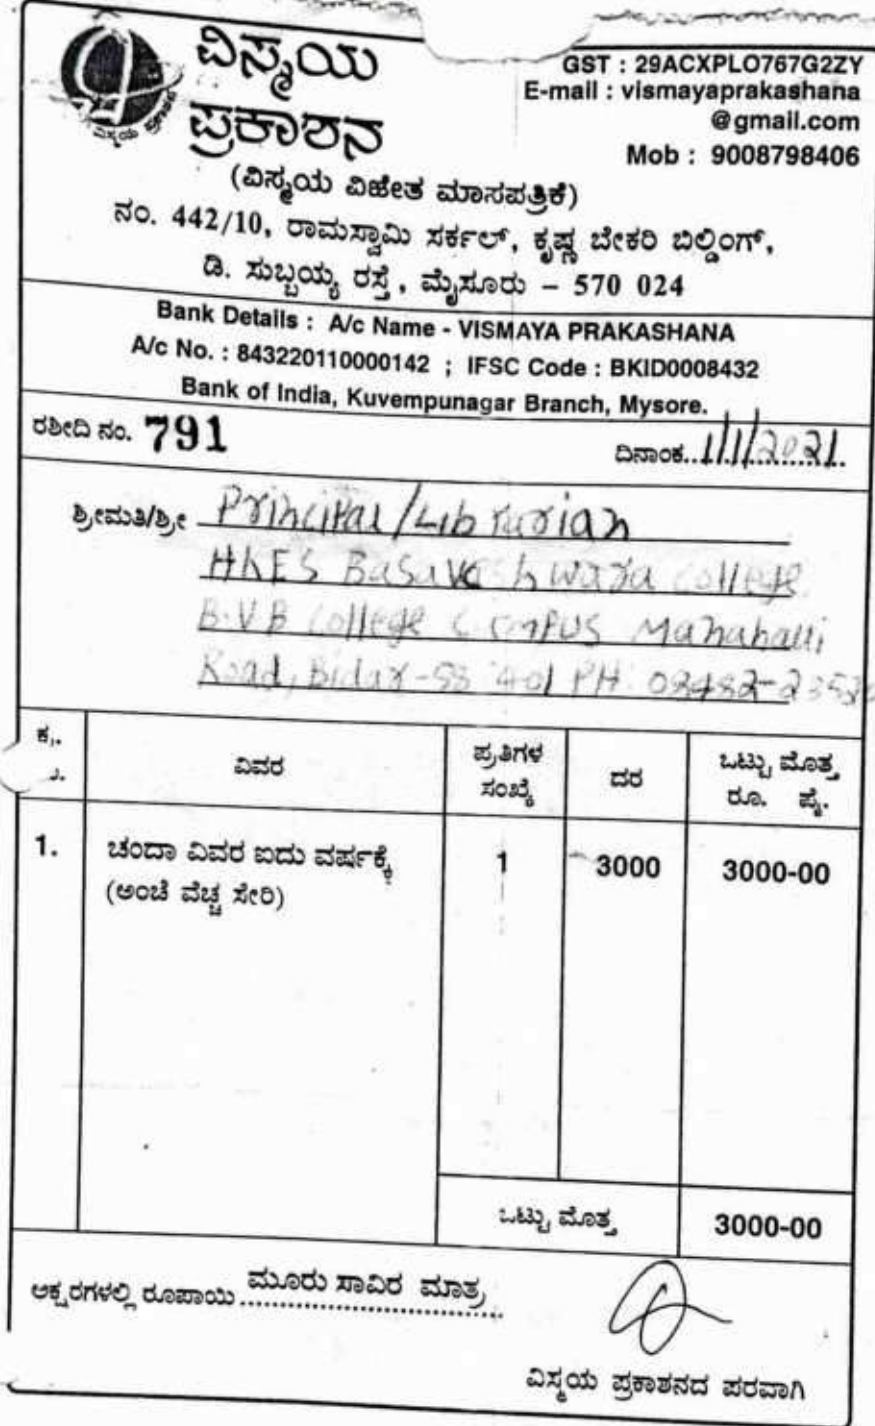 ವಿಸ್ಮಯ
ಪ್ರಕಾಶನ
ವಿಸ್ಮಯ ಪ್ರಕಾಶನ
GST : 29ACXPLO767G2ZY
E-mail : vismayaprakashana
@gmail.com
Mob : 9008798406
(ವಿಸ್ಮಯ ವಿಜೇತ ಮಾಸಪತ್ರಿಕೆ)
ನಂ. 442/10, ರಾಮಸ್ವಾಮಿ ಸರ್ಕಲ್, ಕೃಷ್ಣ ಬೇಕರಿ ಬಿಲ್ಡಿಂಗ್,
ಡಿ. ಸುಬ್ಬಯ್ಯ ರಸ್ತೆ, ಮೈಸೂರು – 570 024
Bank Details : A/c Name - VISMAYA PRAKASHANA
A/c No. : 843220110000142 ; IFSC Code : BKID0008432
Bank of India, Kuvempunagar Branch, Mysore.
ರಶೀದಿ ನಂ. 791 ದಿನಾಂಕ 1/1/2021
ಶ್ರೀಮತಿ/ಶ್ರೀ Principal/Librarian
HKES Basaveshwara college
B.V.B College Campus Manahalli
Road, Bidar PH
ಕ್ರ. ವಿವರ ಪ್ರತಿಗಳ ಸಂಖ್ಯೆ ದರ ಒಟ್ಟು ಮೊತ್ತ ರೂ. ಪೈ.
1. ಚಂದಾ ವಿವರ ಐದು ವರ್ಷಕ್ಕೆ 1 3000 3000-00
(ಅಂಚೆ ವೆಚ್ಚ ಸೇರಿ)
ಒಟ್ಟು ಮೊತ್ತ 3000-00
ಅಕ್ಷರಗಳಲ್ಲಿ ರೂಪಾಯಿ ಮೂರು ಸಾವಿರ ಮಾತ್ರ
ವಿಸ್ಮಯ ಪ್ರಕಾಶನದ ಪರವಾಗಿ